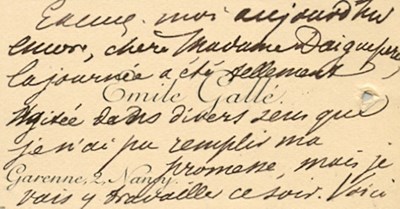 Excusez-moi aujourd'hui
encore, chère Madame Daigueperce,
la journée a été tellement
Emile Gallé.
agitée dans divers sens que
je n'ai pu remplir ma
promesse, mais je
Garenne, 2, Nancy.
vais y travailler ce soir. Voici